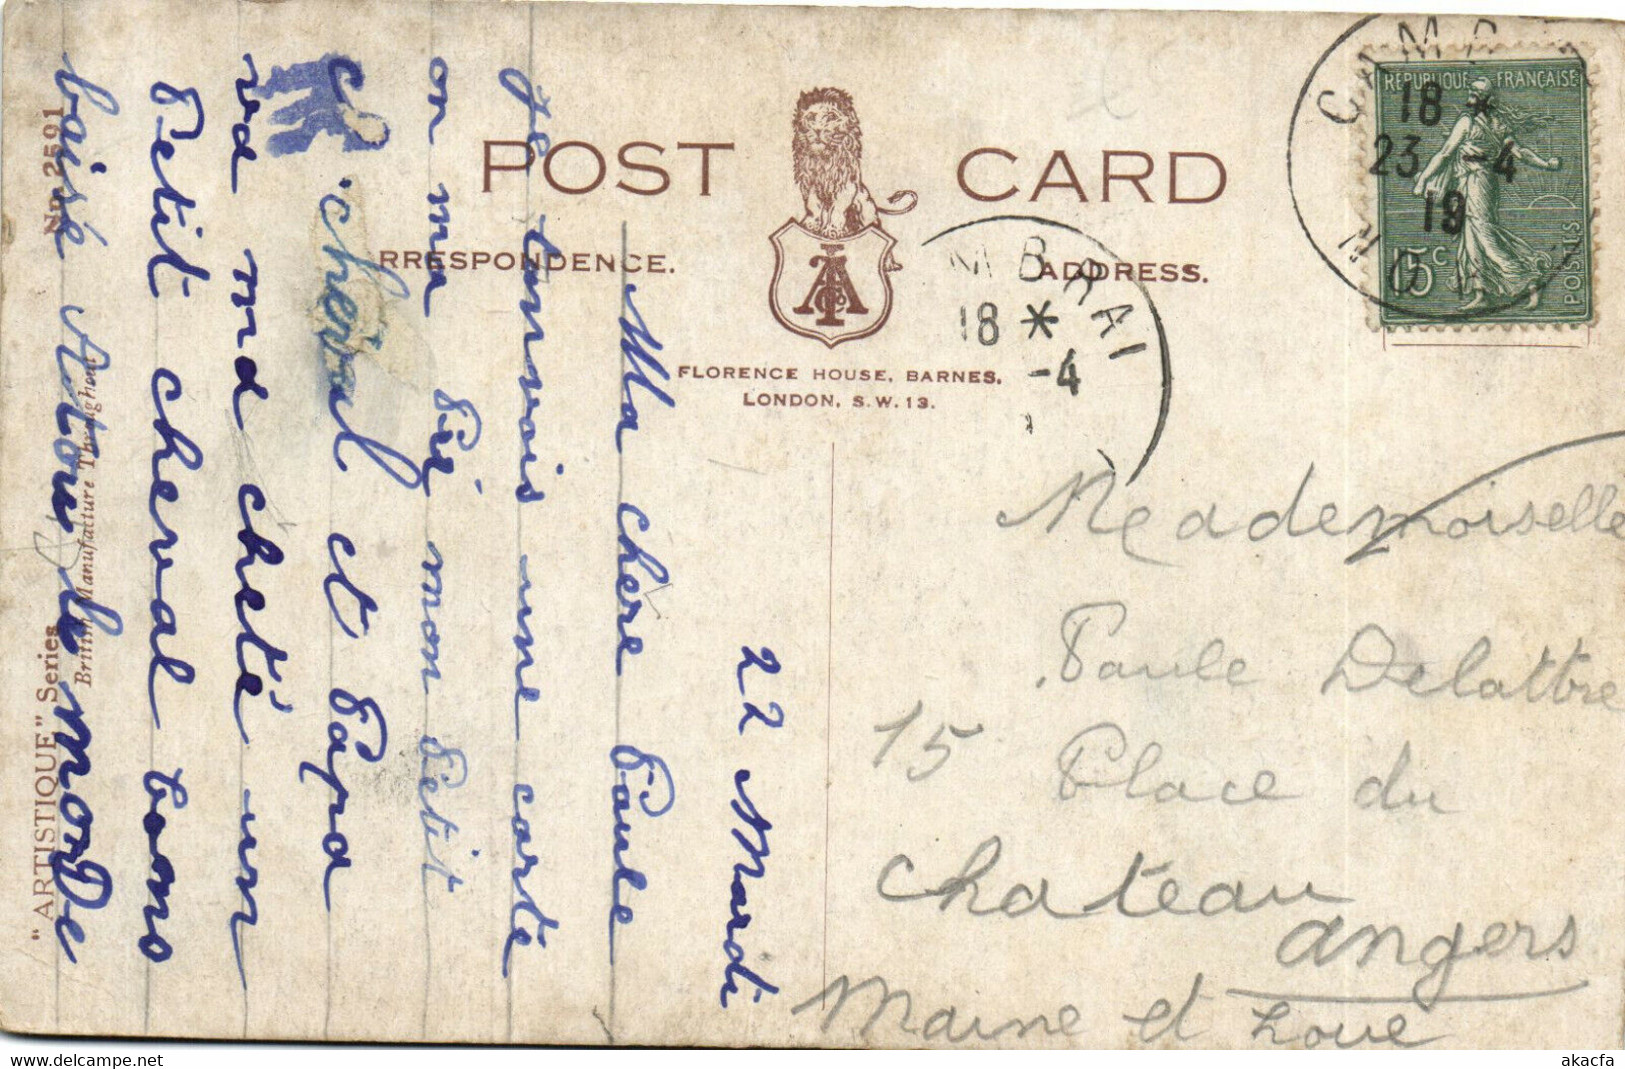 POST CARD
RRESPONDENCE.
ADDRESS.
FLORENCE HOUSE, BARNES,
LONDON, S.W.13.
REPUBLIQUE FRANÇAISE
15 c
POSTES
18 *
23 -4
19
NORD
MBRAI
18 *
-4
22 Mardi
Ma chère Paule
Je tenvois une carte
on ma mon Petit
cheval et Papa
va md cheté un
Petit cheval bons
baisé
Mademoiselle
Paule Delattre
15 Place du
chateau
angers
Maine et Loire
"ARTISTIQUE" Series No 2591
British Manufacture Throughout
akacfa